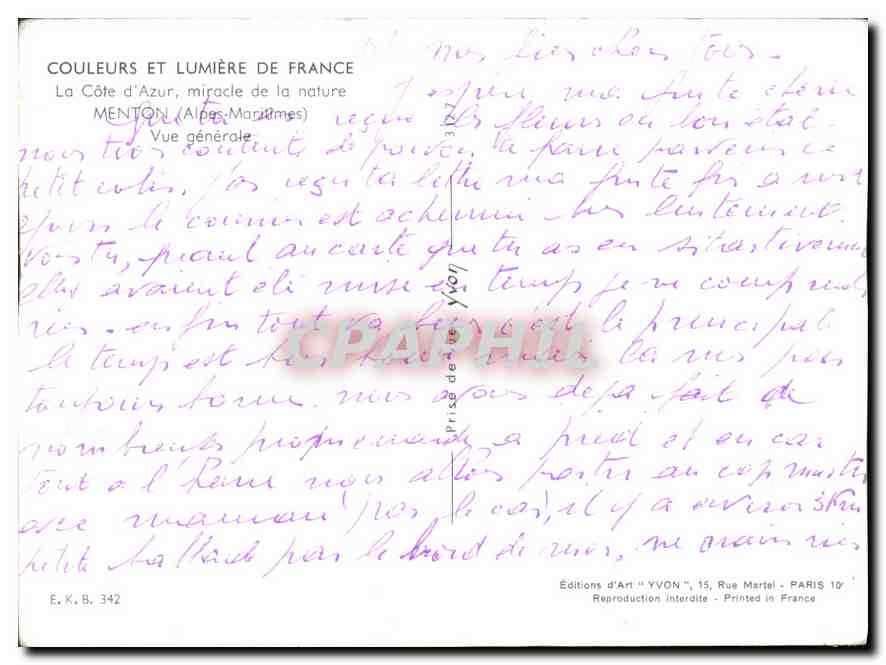 nos bien chers tous.
COULEURS ET LUMIÈRE DE FRANCE
La Côte d'Azur, miracle de la nature
MENTON (Alpes-Maritimes)
Vue générale
3177
J espère ma
que tu as reçu les fleurs en bon état.
nous très contents de pouvoir ta faire parvenir ce
petit colis, j'ai reçu ta lettre ma
jours le courrier est achemin très lentement.
vois tu, quant au carte que tu as eu
elles avaient été mise en temps je ne comprends
rien. enfin tout va bien c'est le principal
le temps est très mais pas
toujours bonne. nous avons déjà fait de
nombreuses promenade a pied et en car
tout a l'heure nous allons partir au cap martin
avec maman pas le cas, il y a environ
petite ballade par le bord de mer, ne crains rien
Prise de vue Yvon
CPAPHIL
E. K. B. 342
Éditions d'Art "YVON", 15, Rue Martel - PARIS 10e
Reproduction interdite - Printed in France